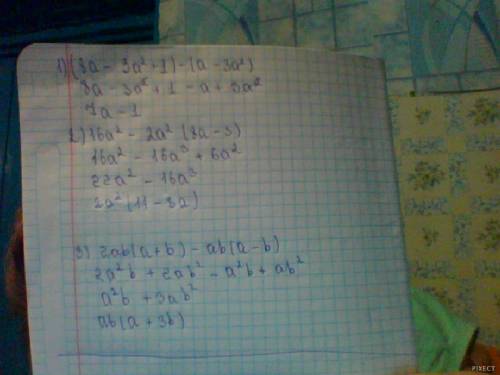 1) (8a - 3a² + 1) - (a - 3a²)
8a - 3a² + 1 - a + 3a²
7a - 1
2) 16a² - 2a² (8a - 3)
16a² - 16a³ + 6a²
22a² - 16a³
2a² (11 - 8a)
3) 2ab(a+b) - ab(a-b)
2a²b + 2ab² - a²b + ab²
a²b + 3ab²
ab(a + 3b)
PIXECT